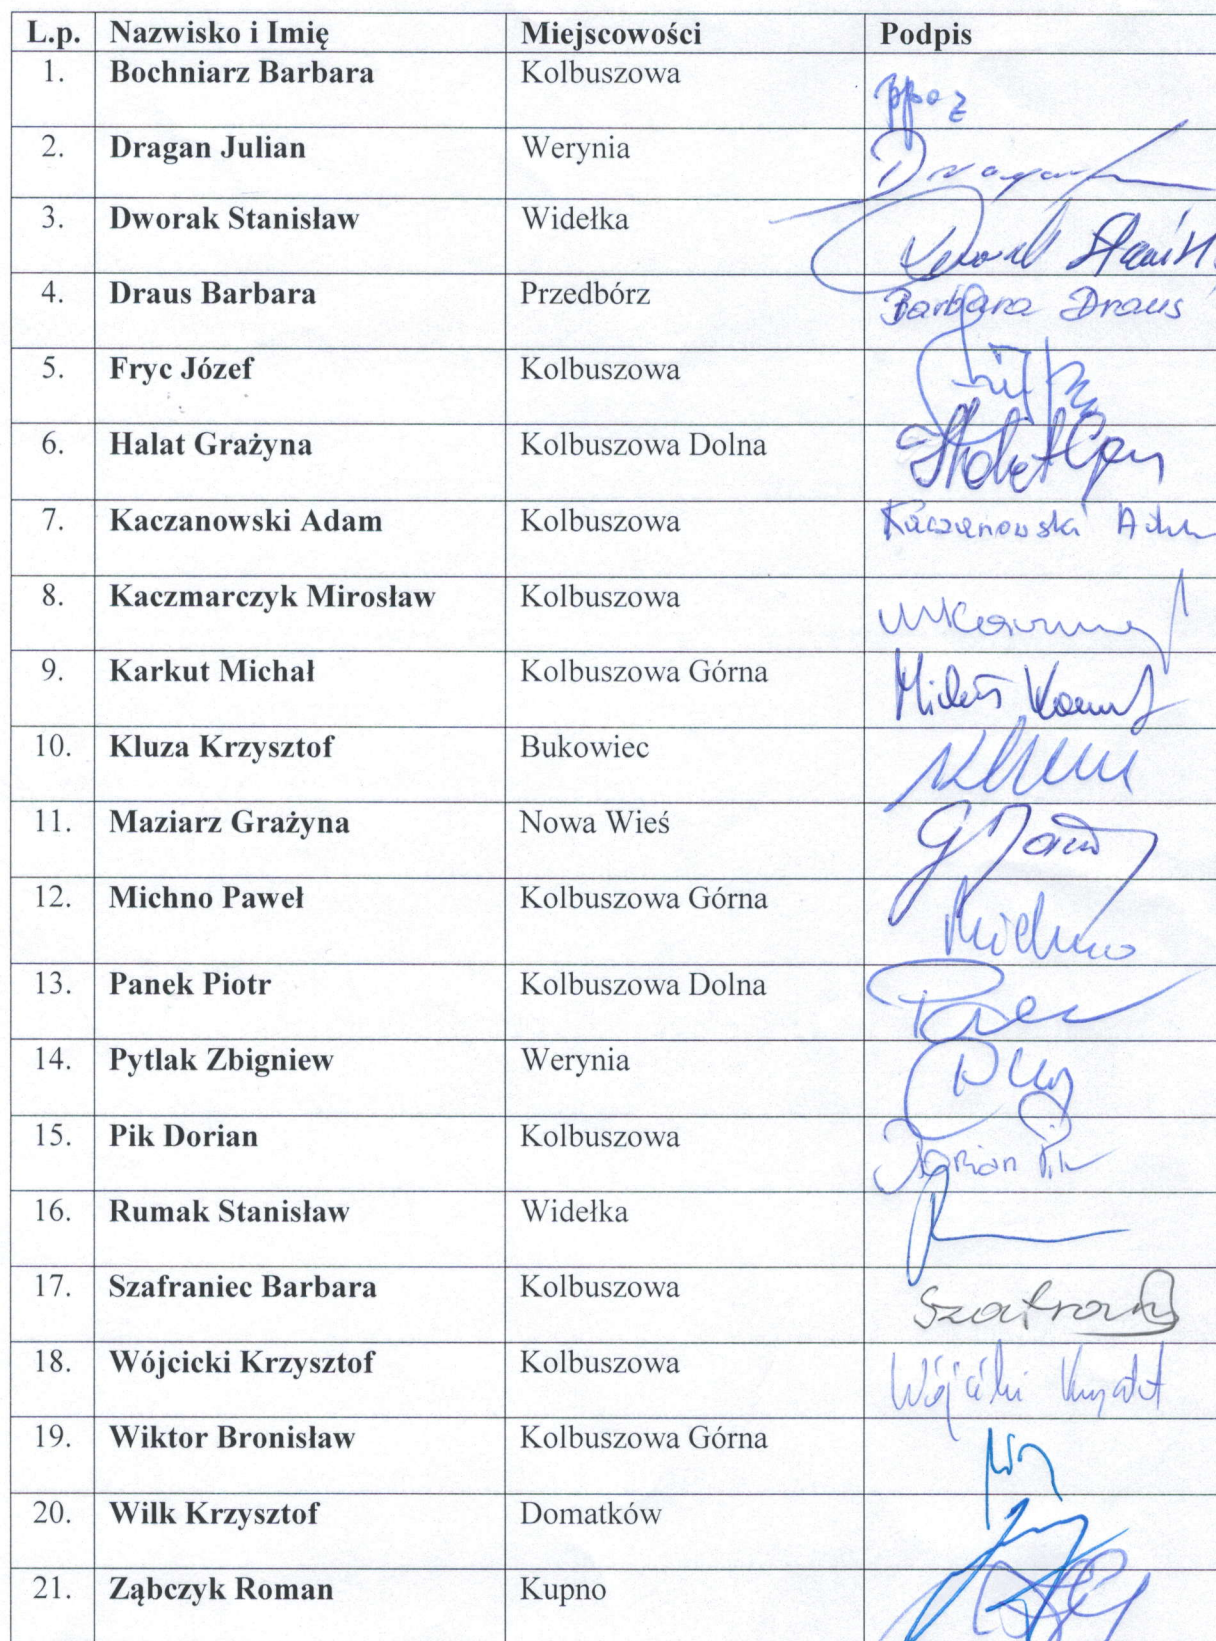 L.p. Nazwisko i Imię Miejscowości Podpis
1. Bochniarz Barbara Kolbuszowa
2. Dragan Julian Werynia Dragan
3. Dworak Stanisław Widełka Dworak Stanisł
4. Draus Barbara Przedbórz Barbara Draus
5. Fryc Józef Kolbuszowa
6. Halat Grażyna Kolbuszowa Dolna
7. Kaczanowski Adam Kolbuszowa Kaczanowski Adam
8. Kaczmarczyk Mirosław Kolbuszowa
9. Karkut Michał Kolbuszowa Górna
10. Kluza Krzysztof Bukowiec
11. Maziarz Grażyna Nowa Wieś
12. Michno Paweł Kolbuszowa Górna Michno
13. Panek Piotr Kolbuszowa Dolna
14. Pytlak Zbigniew Werynia
15. Pik Dorian Kolbuszowa Dorian Pik
16. Rumak Stanisław Widełka
17. Szafraniec Barbara Kolbuszowa
18. Wójcicki Krzysztof Kolbuszowa Wójcicki Krzysztof
19. Wiktor Bronisław Kolbuszowa Górna
20. Wilk Krzysztof Domatków
21. Ząbczyk Roman Kupno